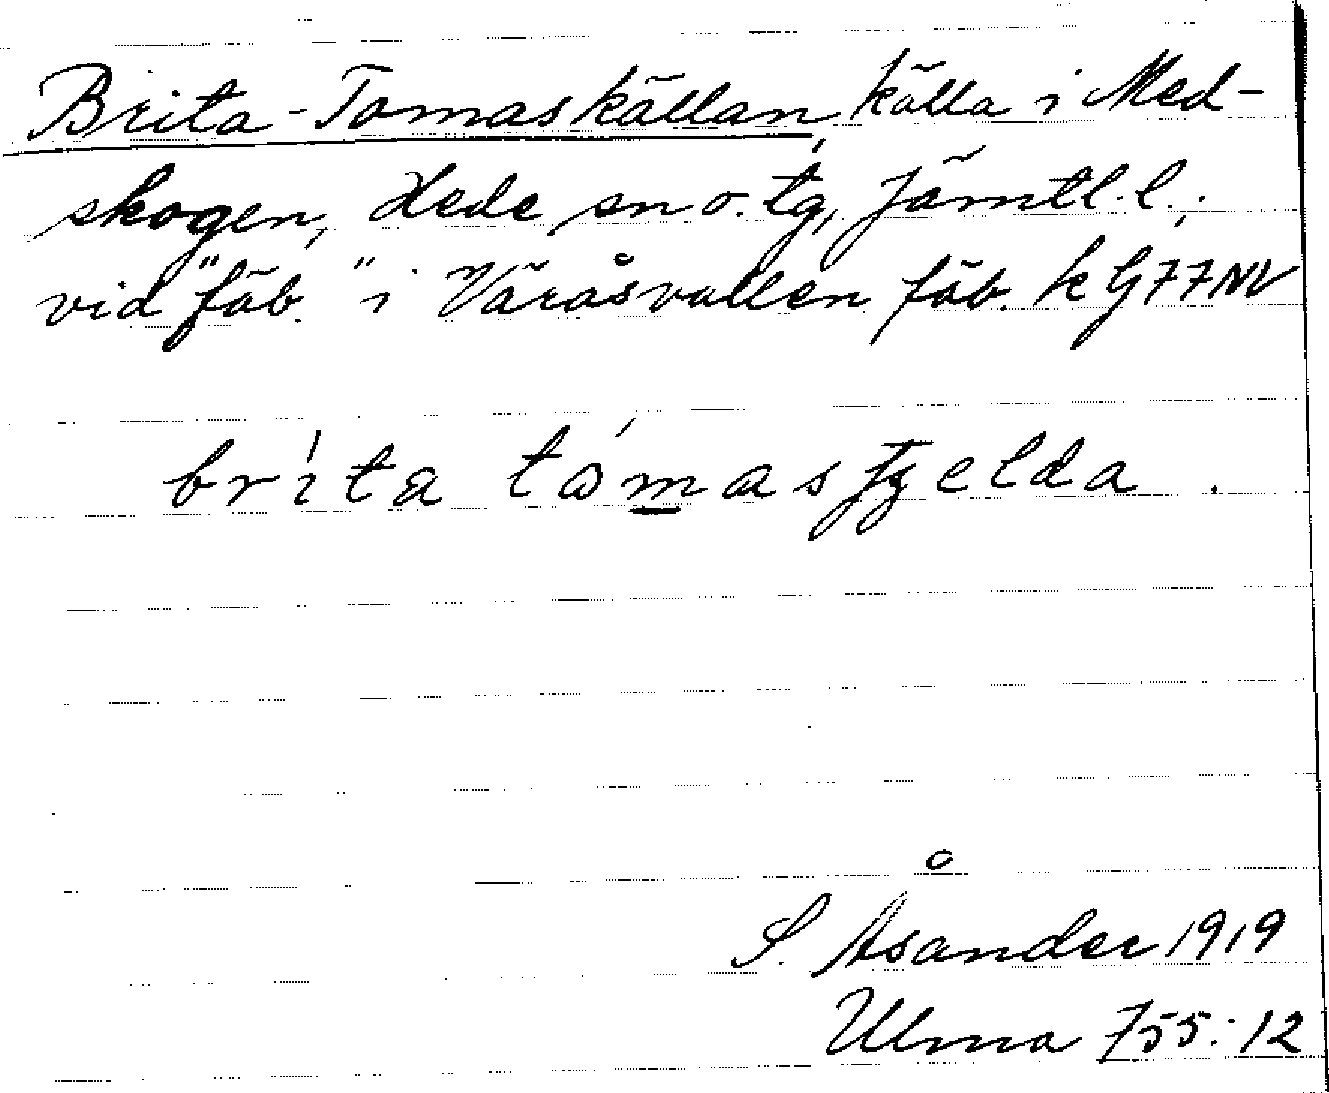 Brita-Tomaskällan, källa i Med-
skogen, Hede sn o. tg, Jämtl. l.;
vid "fäb." i Våråsvallen fäb. k G77NV
brita tómasţʃelda.
S. Åsander 1919
Ulma 755:12